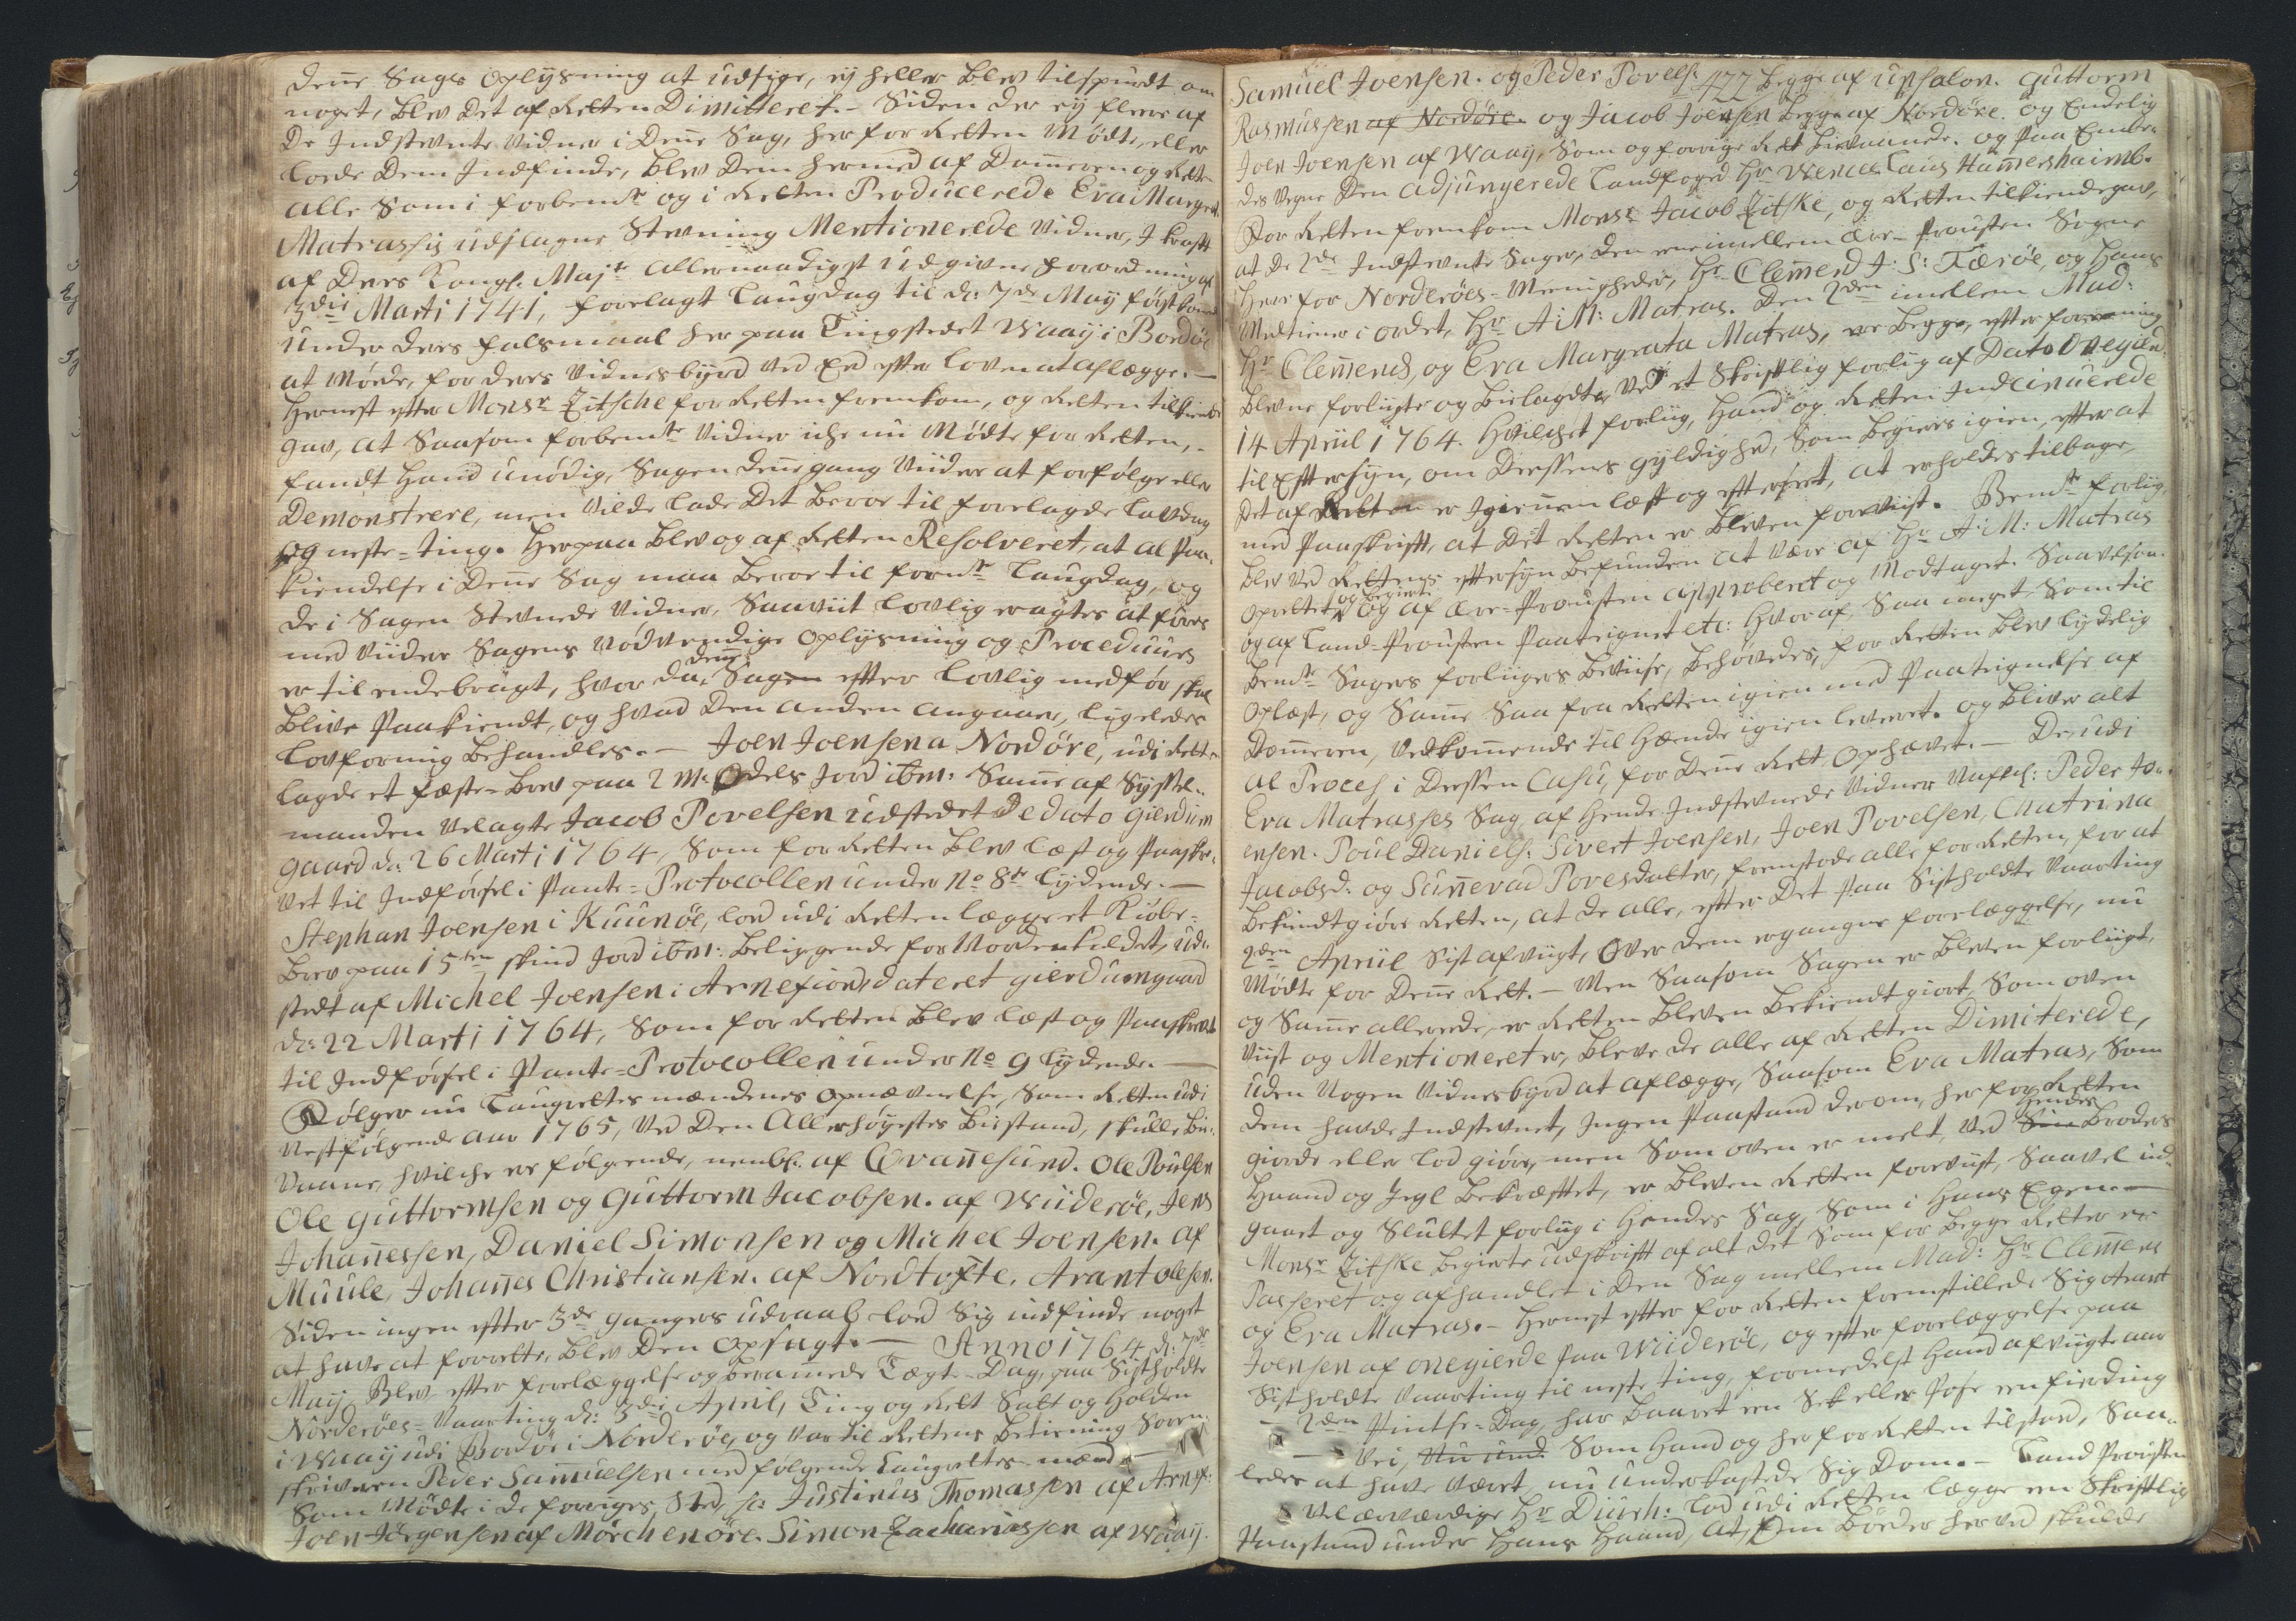 denne Sags Oplÿsning at udsige, eÿ heller blev tilspurdt om
noget, blev det af Retten Dimitteret. – Siden der eÿ fleere af
de Indstevnte Vidner i denne Sag, her for Retten Mødte, eller
loede dem Indfinde, blev dem hermed af Dommeren og Retten
alle som i forbemte og i Retten Producerede Eva Margreta
Matrassis udtagne Stevning Mentionerede Vidner, I kraft
af Deres Kongl. Majts allernaadigst udgivne Forordning af
3die Marti 1741, forelagt Laugdag til d: 7de Maÿ førstkom̄ende
under deres falsmaal her paa Tingstedet Waaÿ i Bordøe
at Møede, for deres Vidnesbÿrd ved Eed efter loven at aflægge. –
Hernest efter Monsr Zitsche for Retten fremkom, og Retten tilkiende
gav, at Saasom forbemte Vidner iche nu Mødte for Retten, -
fandt hand unødig, Sagen denne gang Viider at forfølge eller
Demonstrere, men vilde lade det beroe til forelagde Lavdag
og neste-ting. Herpaa blev og af Retten Resolveret, at al Paa-
kiendelse i denne Sag maa beroe til formte Laugdag, og
de i Sagen Stevnede Vidner, Saaviit lovlig eragtes at føres
med viider Sagens Nødvendige Oplÿsning og Proceduures
er til endebragt, hvor da denne Sagen efter lovlig medfør skal
blive Paakiendt, og hvad den anden angaaer, ligeledes
lovforming behandles. – Joen Joensen a Nordøre, udi Retten
lagde et fæste-brev paa 2 Mr Odels Jord ibm: Samme af Syssel-
manden Velagte Jacob Povelsen udstedet De dato Gierdum
gaard d: 26 Marti 1764, Som for Retten blev læst og Paaskre-
vet til Indførsel i Pante-Protocollen under No 8de lÿdende. –
Stephan Joensen i Kuunøe, loed udi Retten lægge et Kiøbe-
brev paa 15ten skind Jord ibm: beliggende for Norden kildet, ud-
stedt af Michel Joensen i Arnefiord, dateret Gierdumgaard
d: 22 Marti 1764, Som for Retten blev læst og Paaskrevet
til Indførsel i Pante-Protocollen under No 9 lÿdende. –
Følger nu Laugrettes mændenes Opnævnelse, Som Retten udi
Nestfølgende aar 1765, ved Den Allerhøÿestes biestand, skulle bie-
vaane, hvilche er følgende, nembl. af Qvannesund. Ole Poulsen
Ole Guttormsen og Guttorm Jacobsen. af Wiiderøe, Jens
Johan̄essen, Daniel Simonsen og Michel Joensen. Af
Muule, Johan̄es Christiansen. af Nordtofte. Arant Olesen.
Siden ingen efter 3de ganges udraab loed Sig indfinde noget
at have at forrette, blev den Opsagt. – Anno 1764 d: 7de
Maÿ Blev efter forelæggelse og beramede Tægte-Dag, paa Sistholdte
Norderøes-Vaarting d: 3die April, Ting og Rett Satt og holden
i Waaÿ udi Bordøe i Norderøe, og var til Rettens betiening Soren-
skriveren Peder Sam̄uelsen med følgende Laugrettes-mænd –
Som Mødte i de forriges Sted, sc: Justinus Thomassen af Arnef:
Joen Jørgensen af Mørchenøre. Simon Zachariassen af Waaÿ.
Samuel Joensen. og Peder Povels: 477 begge af Upsalon. Guttorm
Rasmussen af Nordøre. og Jacob Joensen begge af Nordøre. og Endelig
Joen Joensen af Waaÿ, Som og forrige Rett bievaanede. og paa Embe-
des Vegne Den Adjungerede Landfoged Hr Wenceslaus Ham̄ershaimb.
For Retten fremkom Monsr Jacob Zitske, og Retten tilkiendegav,
at de 2de Indstevnte Sager, den ene imellem ær-Prousten Sogne
Herr for Norderøes-Meenigheder, Hr Clemend J: S: Færøe, og hans
Medtiener i ordet, Hr A: M: Matras. Den 2den imellem Mad:
Hr Clemends, og Eva Margreta Matras, er begge, efter foreening
blevne forligte og bielagdte, ved et Skriftlig forlig af Dato Onegierd.
14 April 1764. hvilchet forlig, hand og Retten Indcinuerede
til Eftersÿn, om dessens gÿldighed, Som begieres igien, efter at
Det af Retten er Igiennem læst og efterseet, at erholdes tilbage,
med Paaskrift, at Det Retten er bleven foreviist. Bemte forlig
blev ved Rettens eftersÿn befunden at være af Hr A: M: Matras
Oprettet, og begiert og af ære-Prousten approberet og Modtaget. Saavelsom
og af Land-Prousten Paateignet etc: hvoraf, Saa meget Som til
bemte Sagers forligers beviise, behøvedes, for Retten blev lÿdelig
oplæst, og Samme Saa fra Retten igien med Paateignelse af
Dommeren, vedkommende til hænde igien leveret. og bliver alt
al Proces i dessen Casu, for denne Rett ophævet. – De udi
Eva Matrasses Sag af hende Indstevnede Vidner Nafnl: Peder Jo-
ensen. Poul Daniels: Sivert Joensen, Joen Povelsen, Chatrina
Jacobsd: og Sun̄eva Poresdatter, fremstode alle for Retten, for at
bekiendtgiøre Retten, at de alle, efter Det paa Sistholdte Vaarting
2den April Sist afvigt, Over dem erganene forelæggelse, nu
Mødte for denne Rett. – Men Saasom Sagen er bleven forligt,
og Samme allerede, er Retten bleven bekiendtgiort, Som oven
viist og Mentioneret er, bleve de alle af Retten Dimiterede,
uden Nogen Vidnesbÿrd at aflægge, Saasom Eva Matras, Som
dem havde Indstevnet, Ingen Paastand derom, her for Retten
giorde eller lod giøre, men Som oven er melt, ved Sin hendes broders
haand og Segl bekræftet, er bleven Retten foreviist, Saavel ind-
gaaet og Sluttet forlig i hendes Sag, Som i hans Egen. –
Monsr Zitske begierte udskrift af alt det Som for begge Retter er
Passeret og afhandlet i den Sag mellem Mad: Hr Clemens
og Eva Matras. – Hernest efter for Retten fremstillede Sig Arant
Joensen af Onegierde paa Wiiderøe, og efter forelæggelse paa
Sistholdte Vaarting til neste ting, formedelst hand afvigte aar
– 2den Pintse-Dag, har baaret een Sek eller Pose een fierding
vei, Som hand og her for Retten tilstoed, Saa-
ledes at have været, nu underkastede Sig Dom. – Land Prousten
Velærværdige Hr Diurh: lod udi Retten lægge een Skriftlig
Paastand under hans haand, at, Om bøeder herved skulde